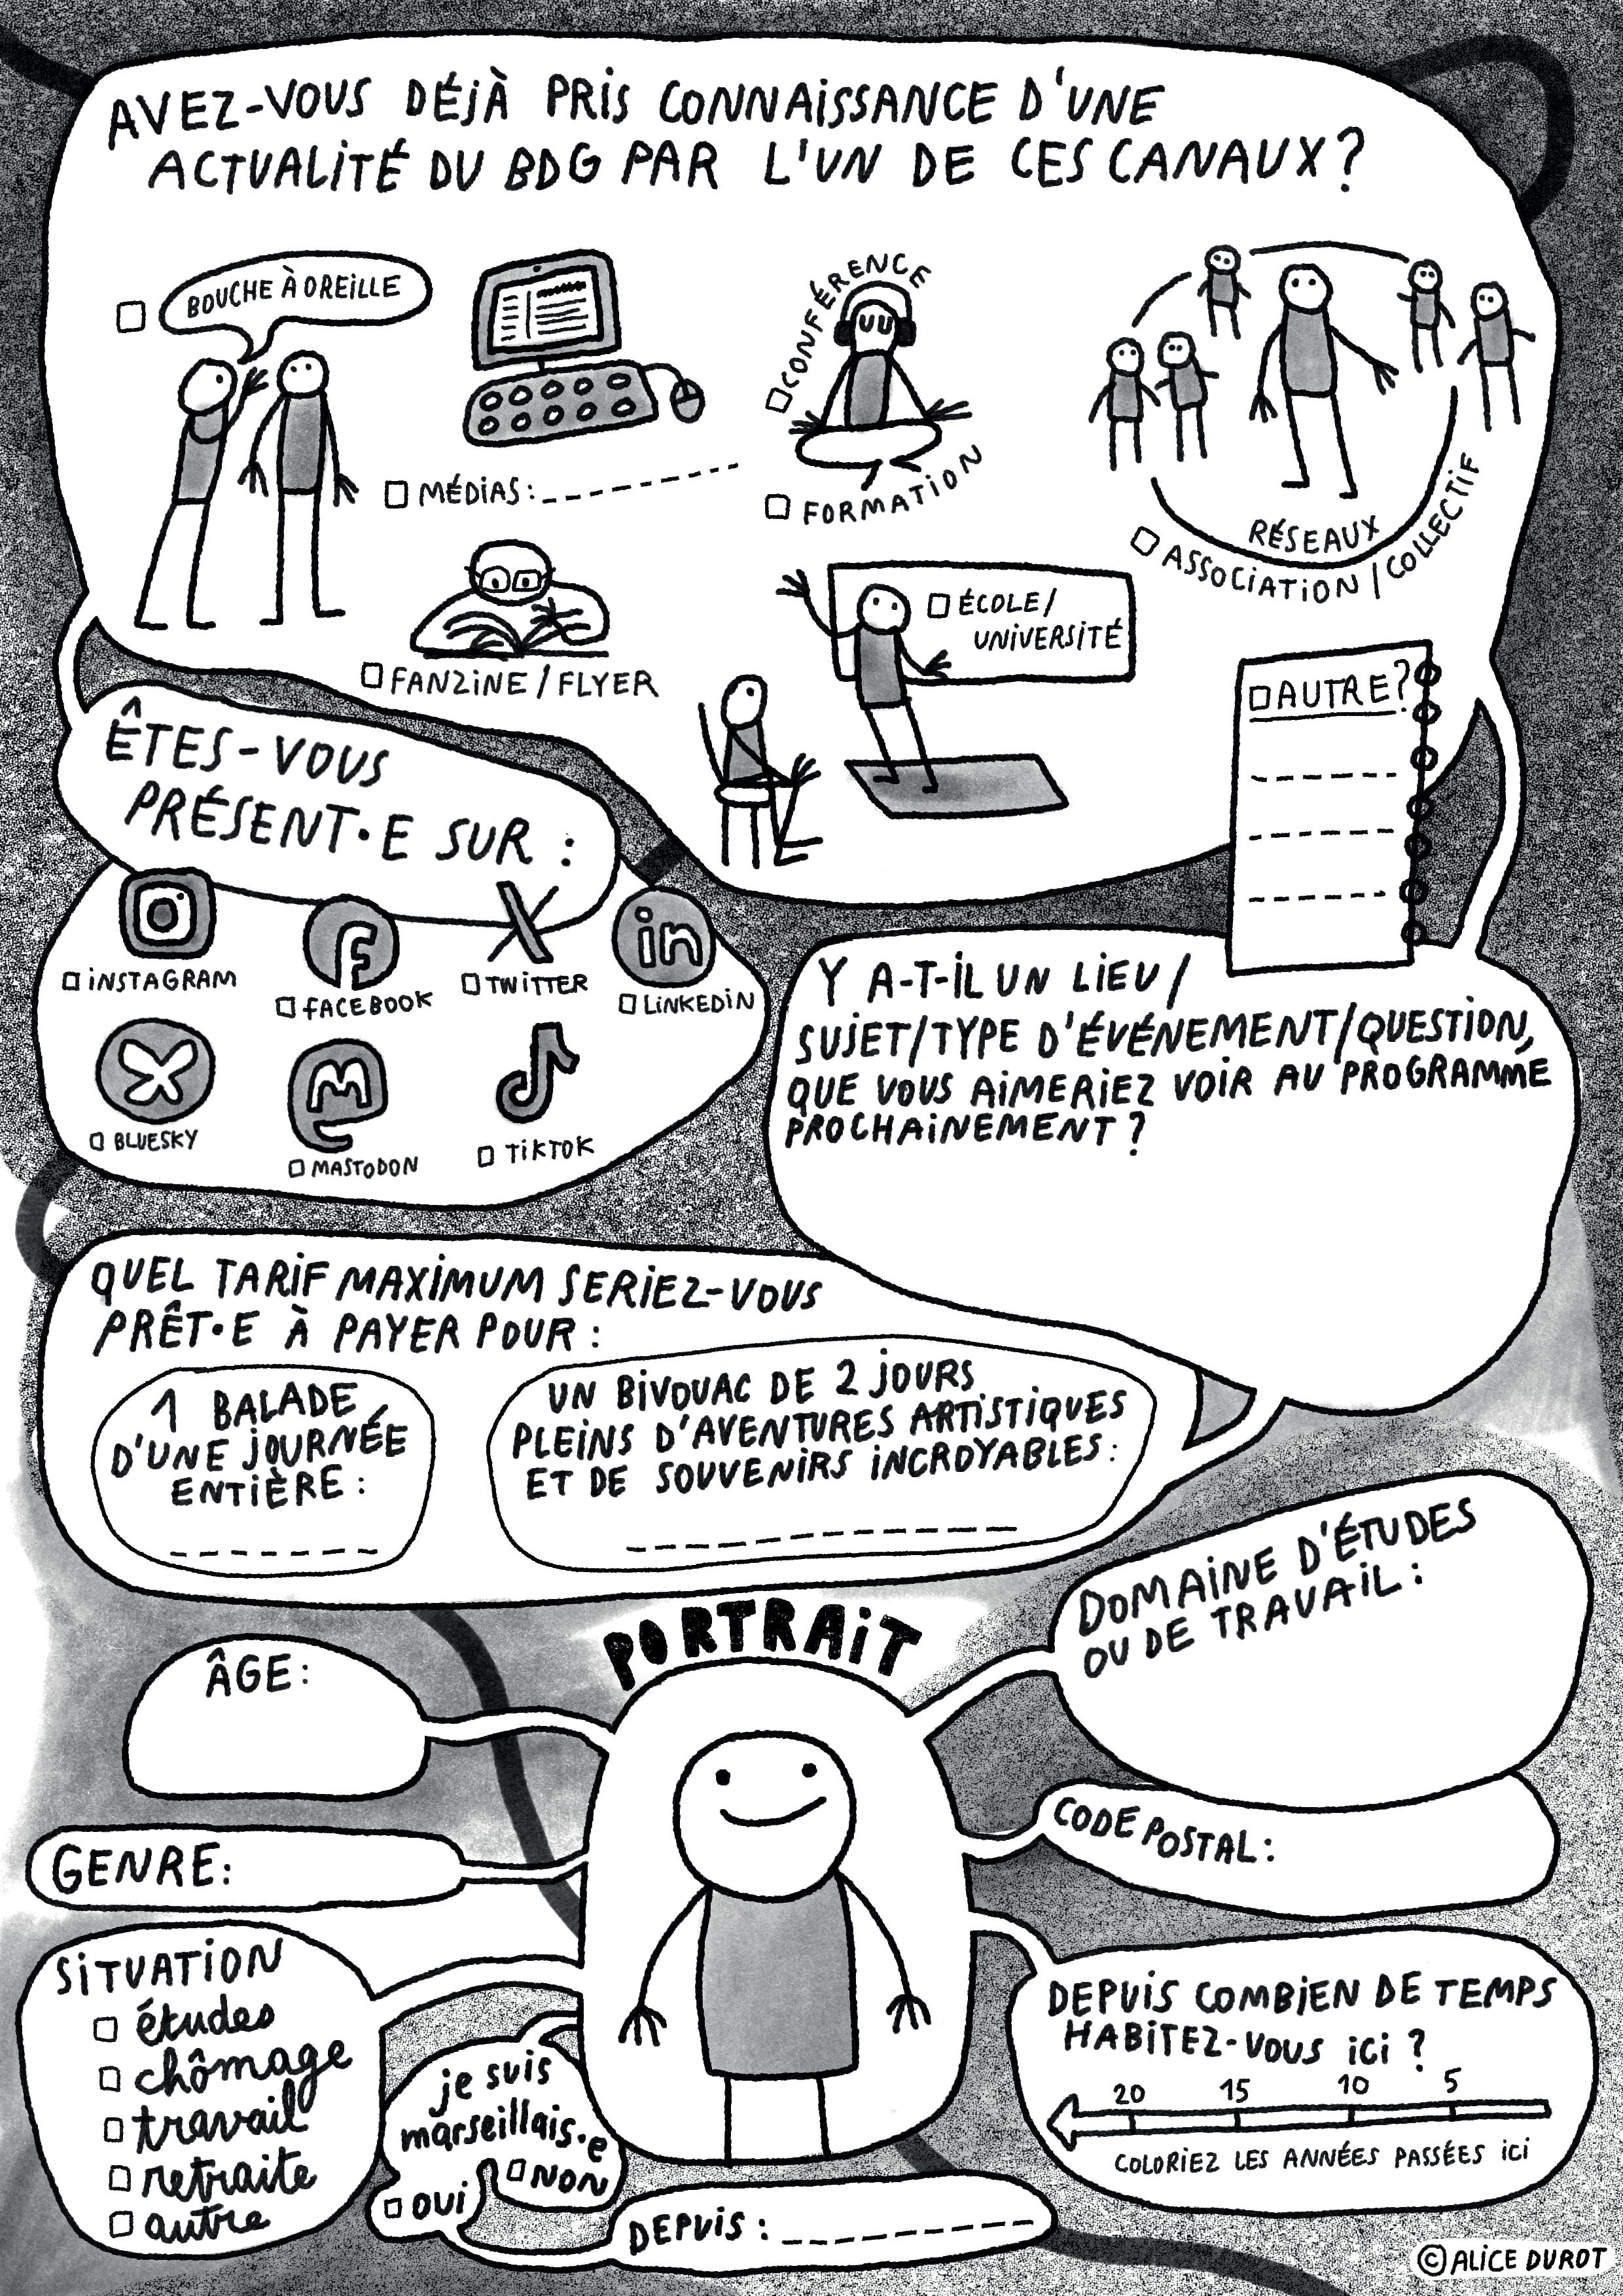 AVEZ-VOUS DÉJÀ PRIS CONNAISSANCE D'UNE
ACTUALITÉ DU BDG PAR L'UN DE CES CANAUX ?
☐ BOUCHE À OREILLE
☐ MÉDIAS :
☐ CONFÉRENCE
☐ FORMATION
RÉSEAUX
☐ ASSOCIATION / COLLECTIF
☐ FANZINE / FLYER
☐ ÉCOLE /
UNIVERSITÉ
☐ AUTRE ?
ÊTES-VOUS
PRÉSENT·E SUR :
in
☐ INSTAGRAM
☐ FACEBOOK
☐ TWITTER
☐ LINKEDIN
☐ BLUESKY
☐ MASTODON
☐ TIKTOK
Y A-T-IL UN LIEU /
SUJET/TYPE D'ÉVÉNEMENT/QUESTION,
QUE VOUS AIMERIEZ VOIR AU PROGRAMME
PROCHAINEMENT ?
QUEL TARIF MAXIMUM SERIEZ-VOUS
PRÊT·E À PAYER POUR :
1 BALADE
D'UNE JOURNÉE
ENTIÈRE :
UN BIVOUAC DE 2 JOURS
PLEINS D'AVENTURES ARTISTIQUES
ET DE SOUVENIRS INCROYABLES :
PORTRAIT
ÂGE :
GENRE :
SITUATION
☐ études
☐ chômage
☐ travail
☐ retraite
☐ autre
je suis
marseillais·e
☐ OUI
☐ NON
DEPUIS :
DOMAINE D'ÉTUDES
OU DE TRAVAIL :
CODE POSTAL :
DEPUIS COMBIEN DE TEMPS
HABITEZ-VOUS ICI ?
20 15 10 5
COLORIEZ LES ANNÉES PASSÉES ICI
© ALICE DUROT